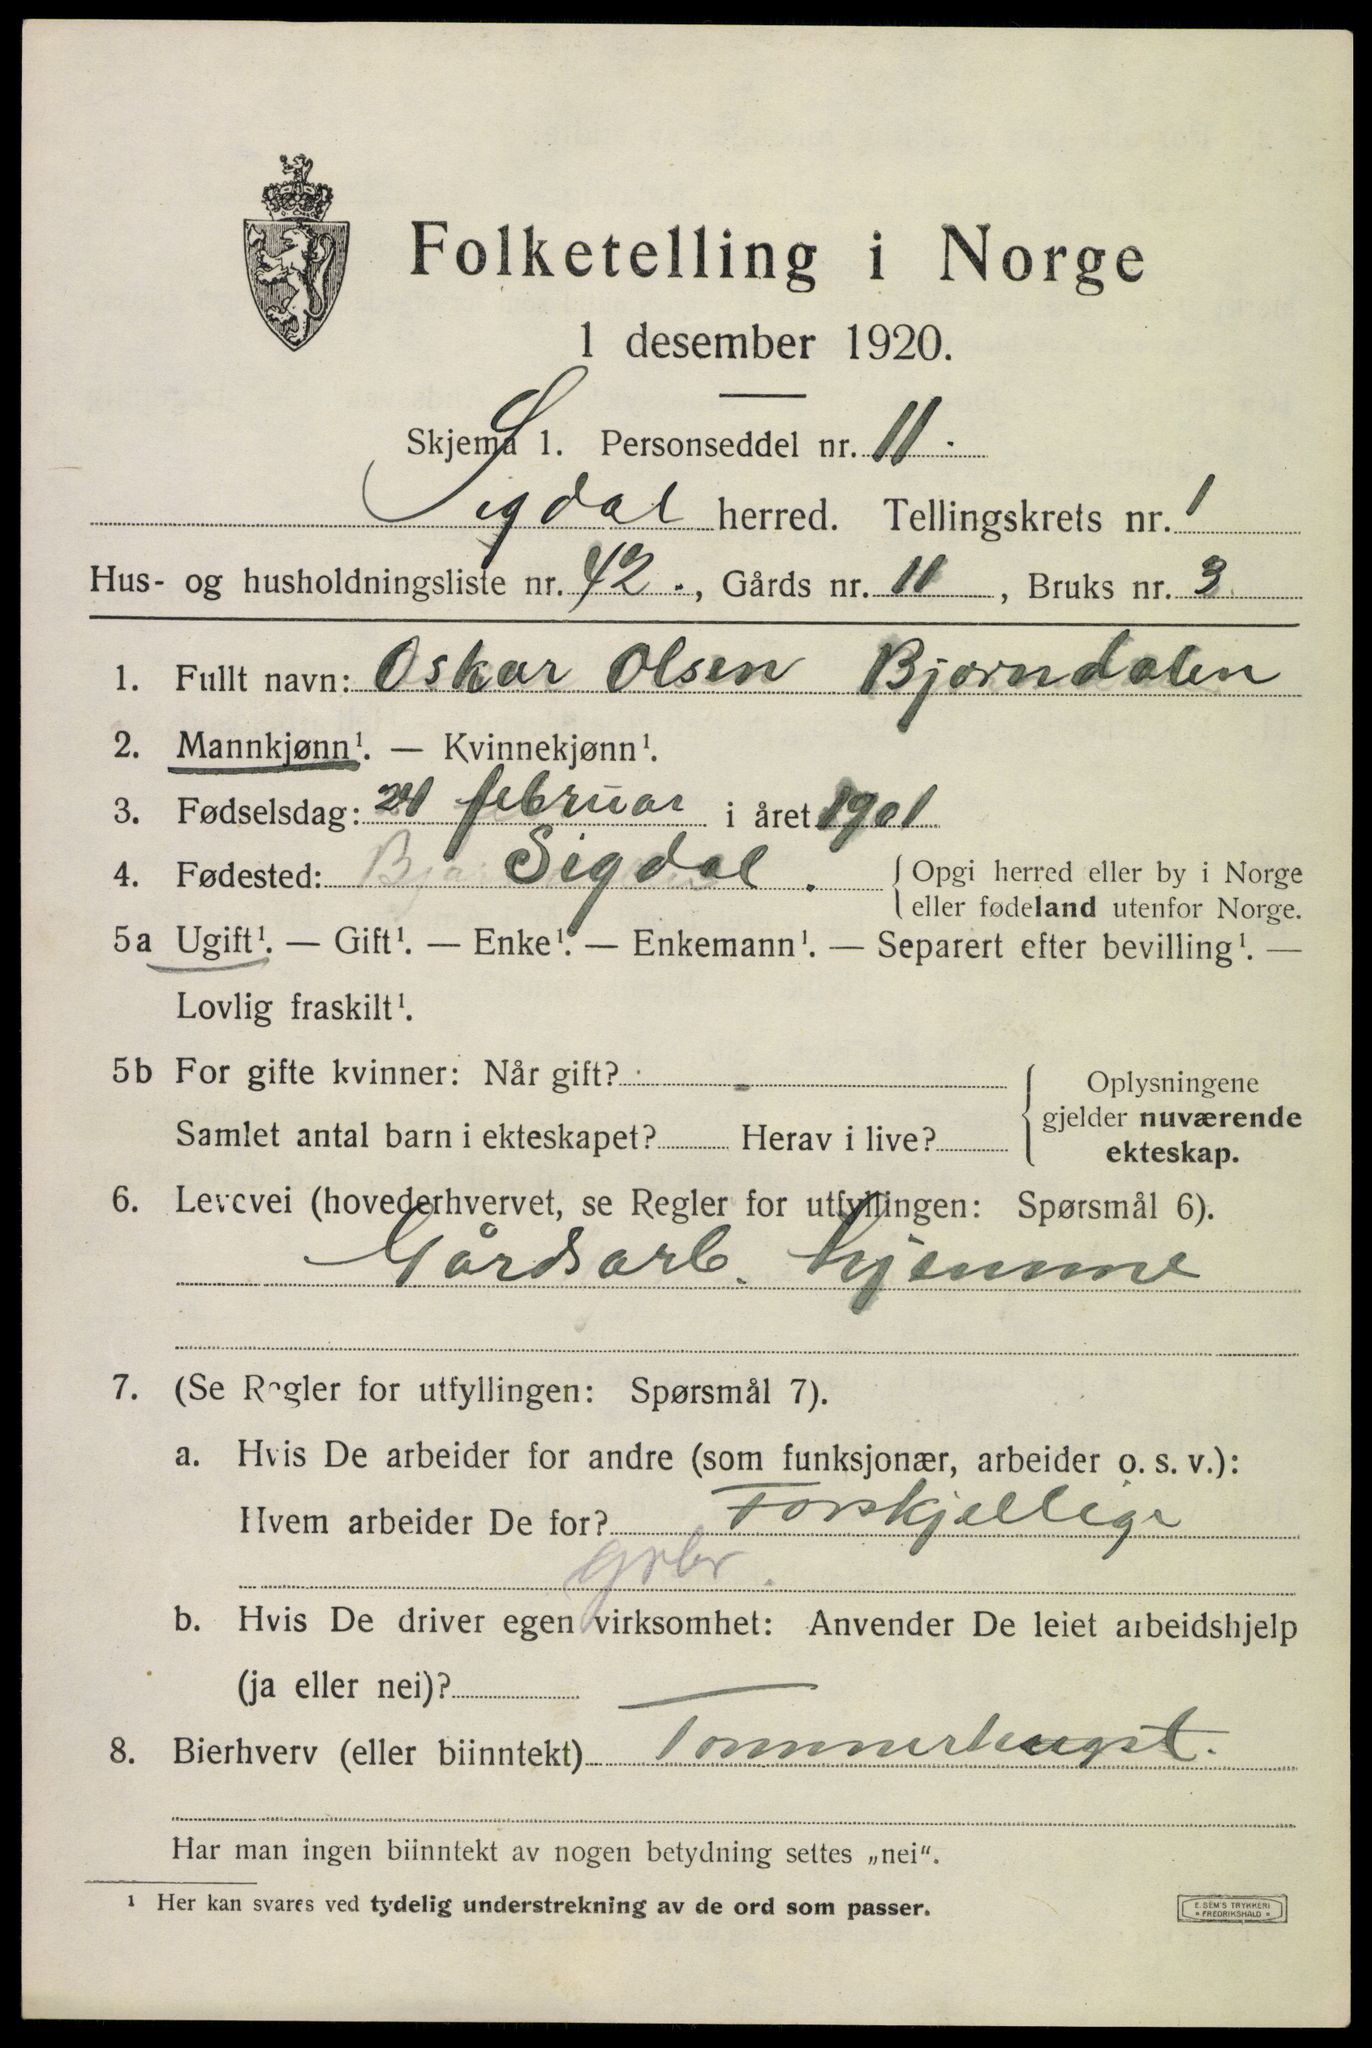 Folketelling i Norge
1 desember 1920.
Skjema 1. Personseddel nr. 11.
Sigdal herred. Tellingskrets nr. 1
Hus- og husholdningsliste nr. 42., Gårds nr. 11, Bruks nr. 3
1. Fullt navn: Oskar Olsen Bjørndalen
2. Mannkjønn¹. — Kvinnekjønn¹.
3. Fødselsdag: 24 februar i året 1901
4. Fødested: Sigdal. Opgi herred eller by i Norge
eller fødeland utenfor Norge.
5a Ugift¹. — Gift¹. — Enke¹. — Enkemann¹. — Separert efter bevilling¹. —
Lovlig fraskilt¹.
5b For gifte kvinner: Når gift? Oplysningene
gjelder nuværende
Samlet antal barn i ekteskapet? Herav i live?
ekteskap.
6. Levevei (hovederhvervet, se Regler for utfyllingen: Spørsmål 6).
Gårdsarb. hjemme
7. (Se Regler for utfyllingen: Spørsmål 7).
a. Hvis De arbeider for andre (som funksjonær, arbeider o. s. v.):
Hvem arbeider De for? Forskjellige
grbr.
b. Hvis De driver egen virksomhet: Anvender De leiet arbeidshjelp
(ja eller nei)?
8. Bierhverv (eller biinntekt) Tømmerhugst.
Har man ingen biinntekt av nogen betydning settes „nei".
¹ Her kan svares ved tydelig understrekning av de ord som passer.
E. SEM'S TRYKKERI
FREDRIKSHALD